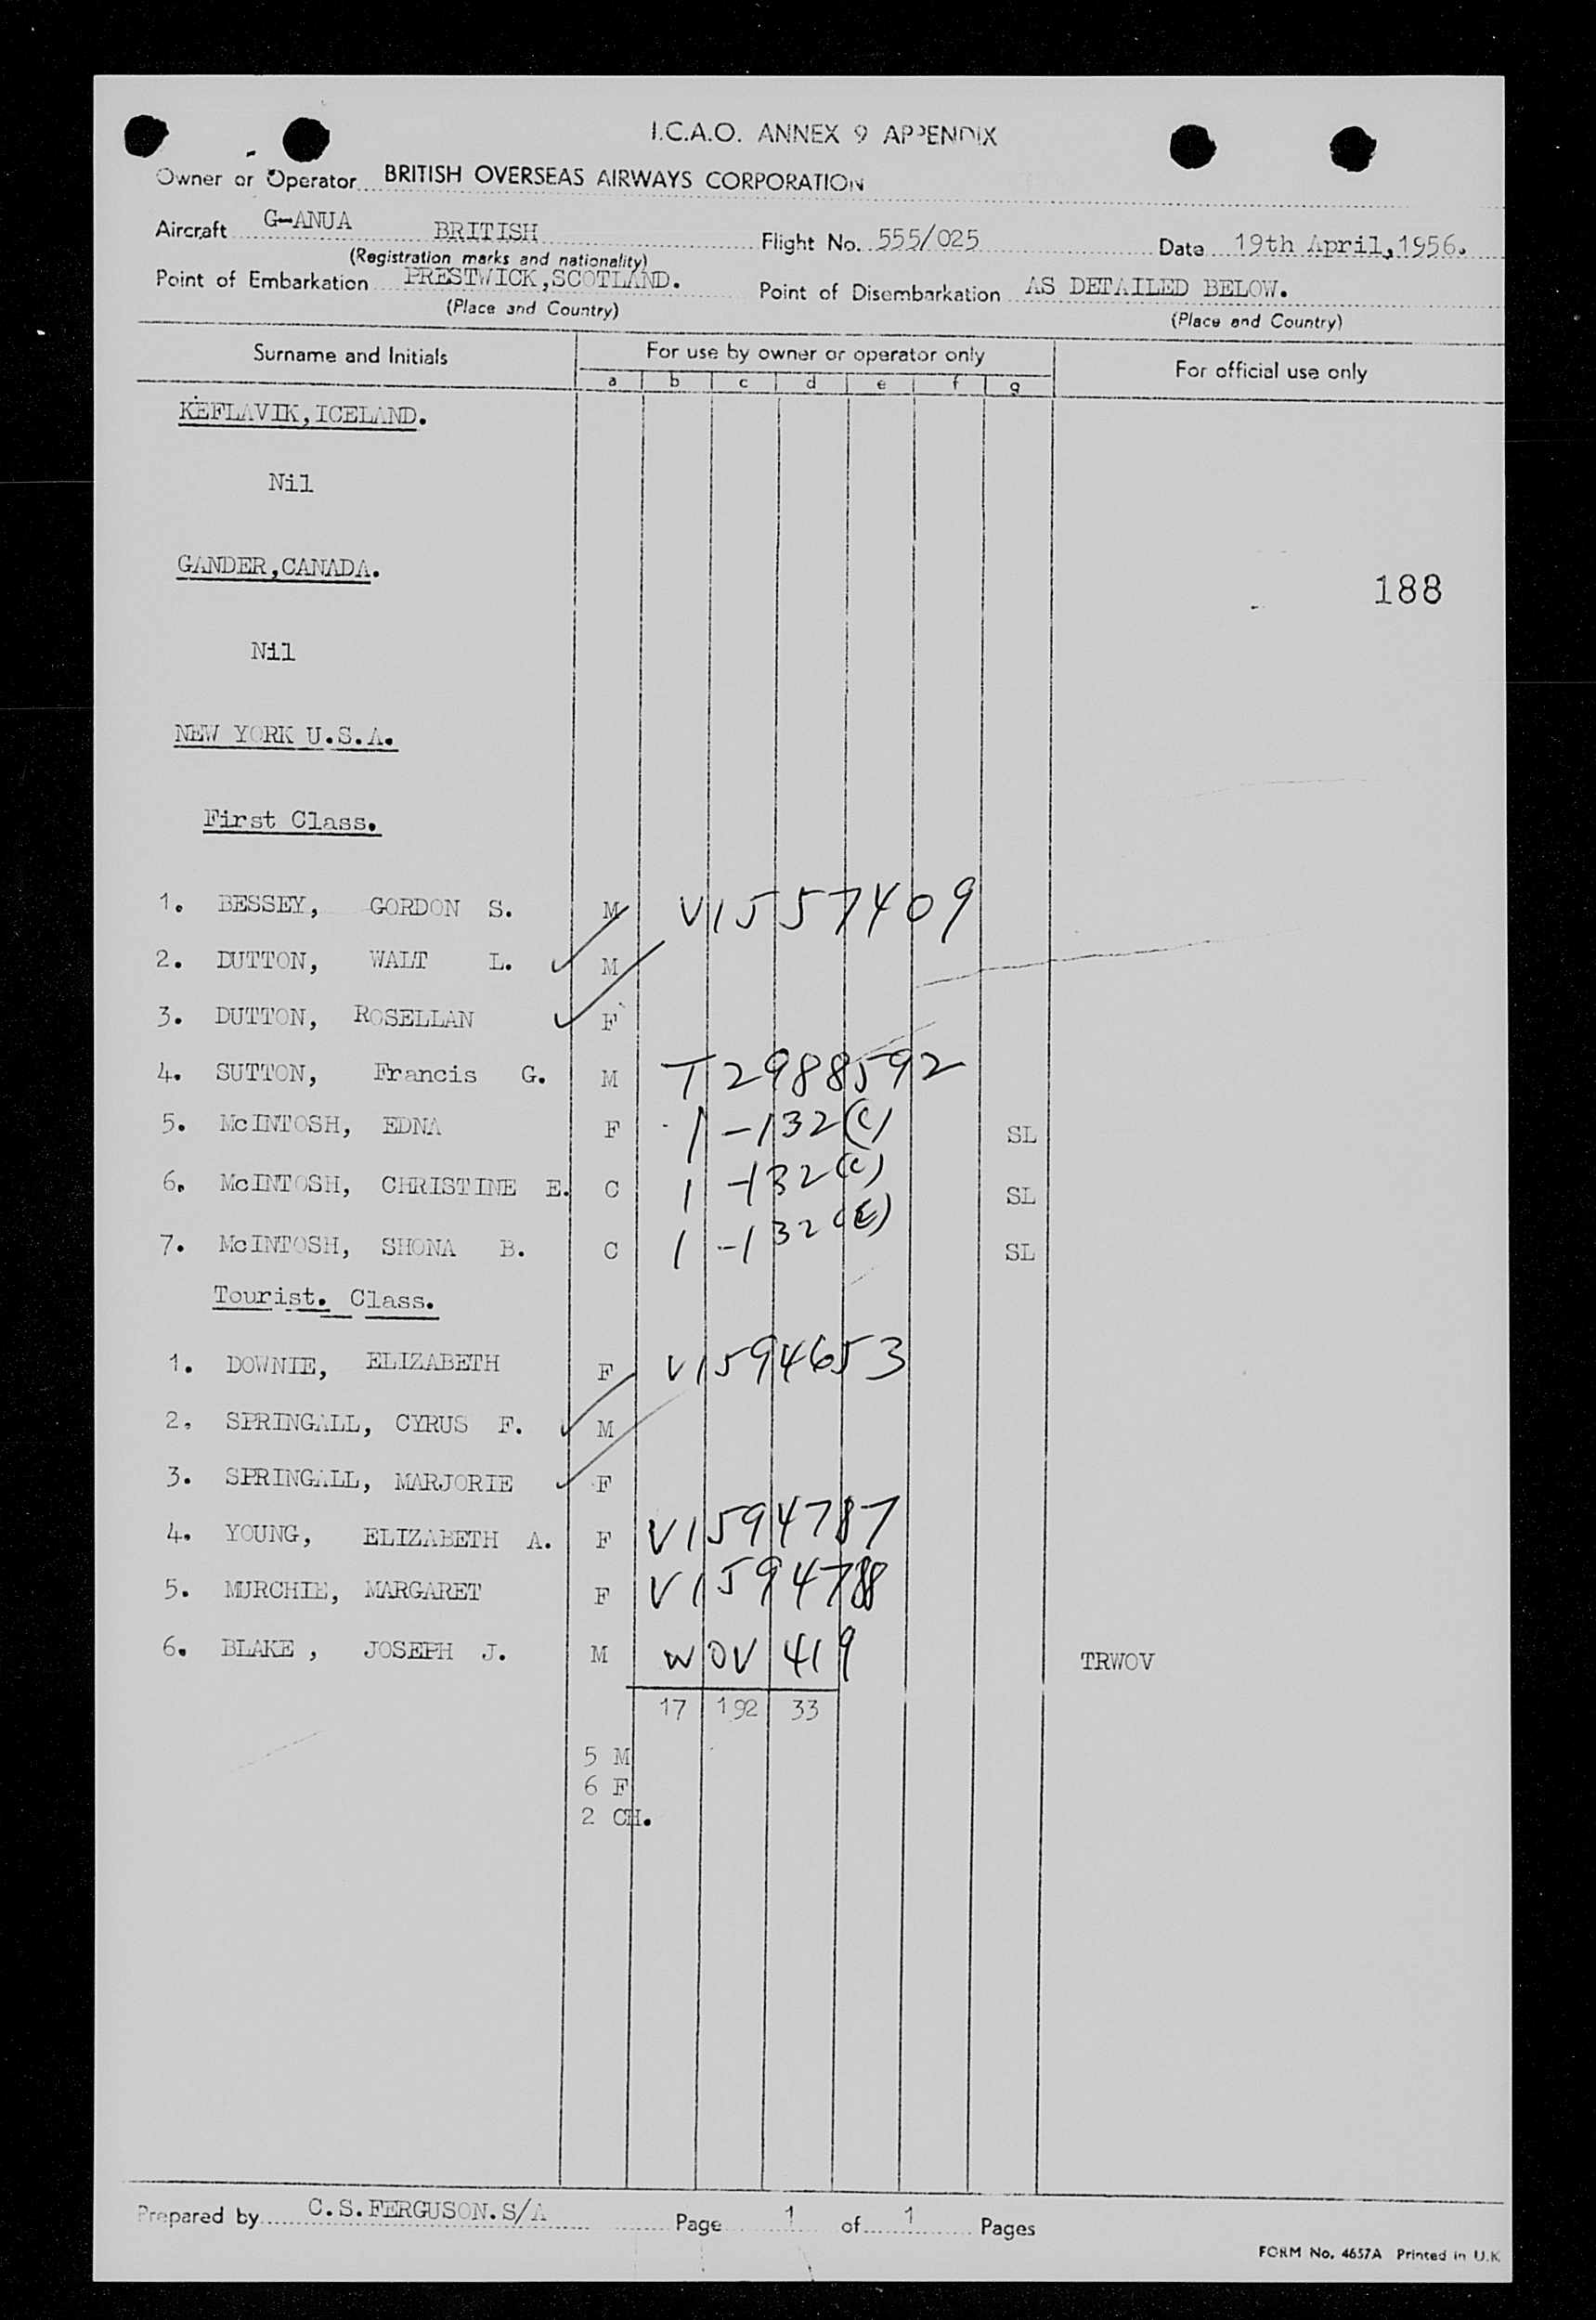 I.C.A.O. ANNEX 9 APPENDIX
Owner or Operator BRITISH OVERSEAS AIRWAYS CORPORATION
Aircraft G-ANUA BRITISH Flight No. 555/025 Date 19th April,1956.
(Registration marks and nationality)
Point of Embarkation PRESTWICK,SCOTLAND. Point of Disembarkation AS DETAILED BELOW.
(Place and Country) (Place and Country)
Surname and Initials For use by owner or operator only For official use only
a b c d e f g
KEFLAVIK,ICELAND.
Nil
GANDER,CANADA.
188
Nil
NEW YORK U.S.A.
First Class.
1. BESSEY, GORDON S. M V1557409
2. DUTTON, WALT L. M
3. DUTTON, ROSELLAN F
4. SUTTON, Francis G. M T2988592
5. McINTOSH, EDNA F 1-132(C) SL
6. McINTOSH, CHRISTINE E. C 1-132(C) SL
7. McINTOSH, SHONA B. C 1-132(E) SL
Tourist. Class.
1. DOWNIE, ELIZABETH F V1594653
2. SPRINGALL, CYRUS F. M
3. SPRINGALL, MARJORIE F
4. YOUNG, ELIZABETH A. F V1594787
5. MURCHIE, MARGARET F V1594788
6. BLAKE, JOSEPH J. M WOV 419 TRWOV
17 192 33
5 M
6 F
2 CH.
Prepared by C.S.FERGUSON.S/A Page 1 of 1 Pages
FORM No. 4657A Printed in U.K